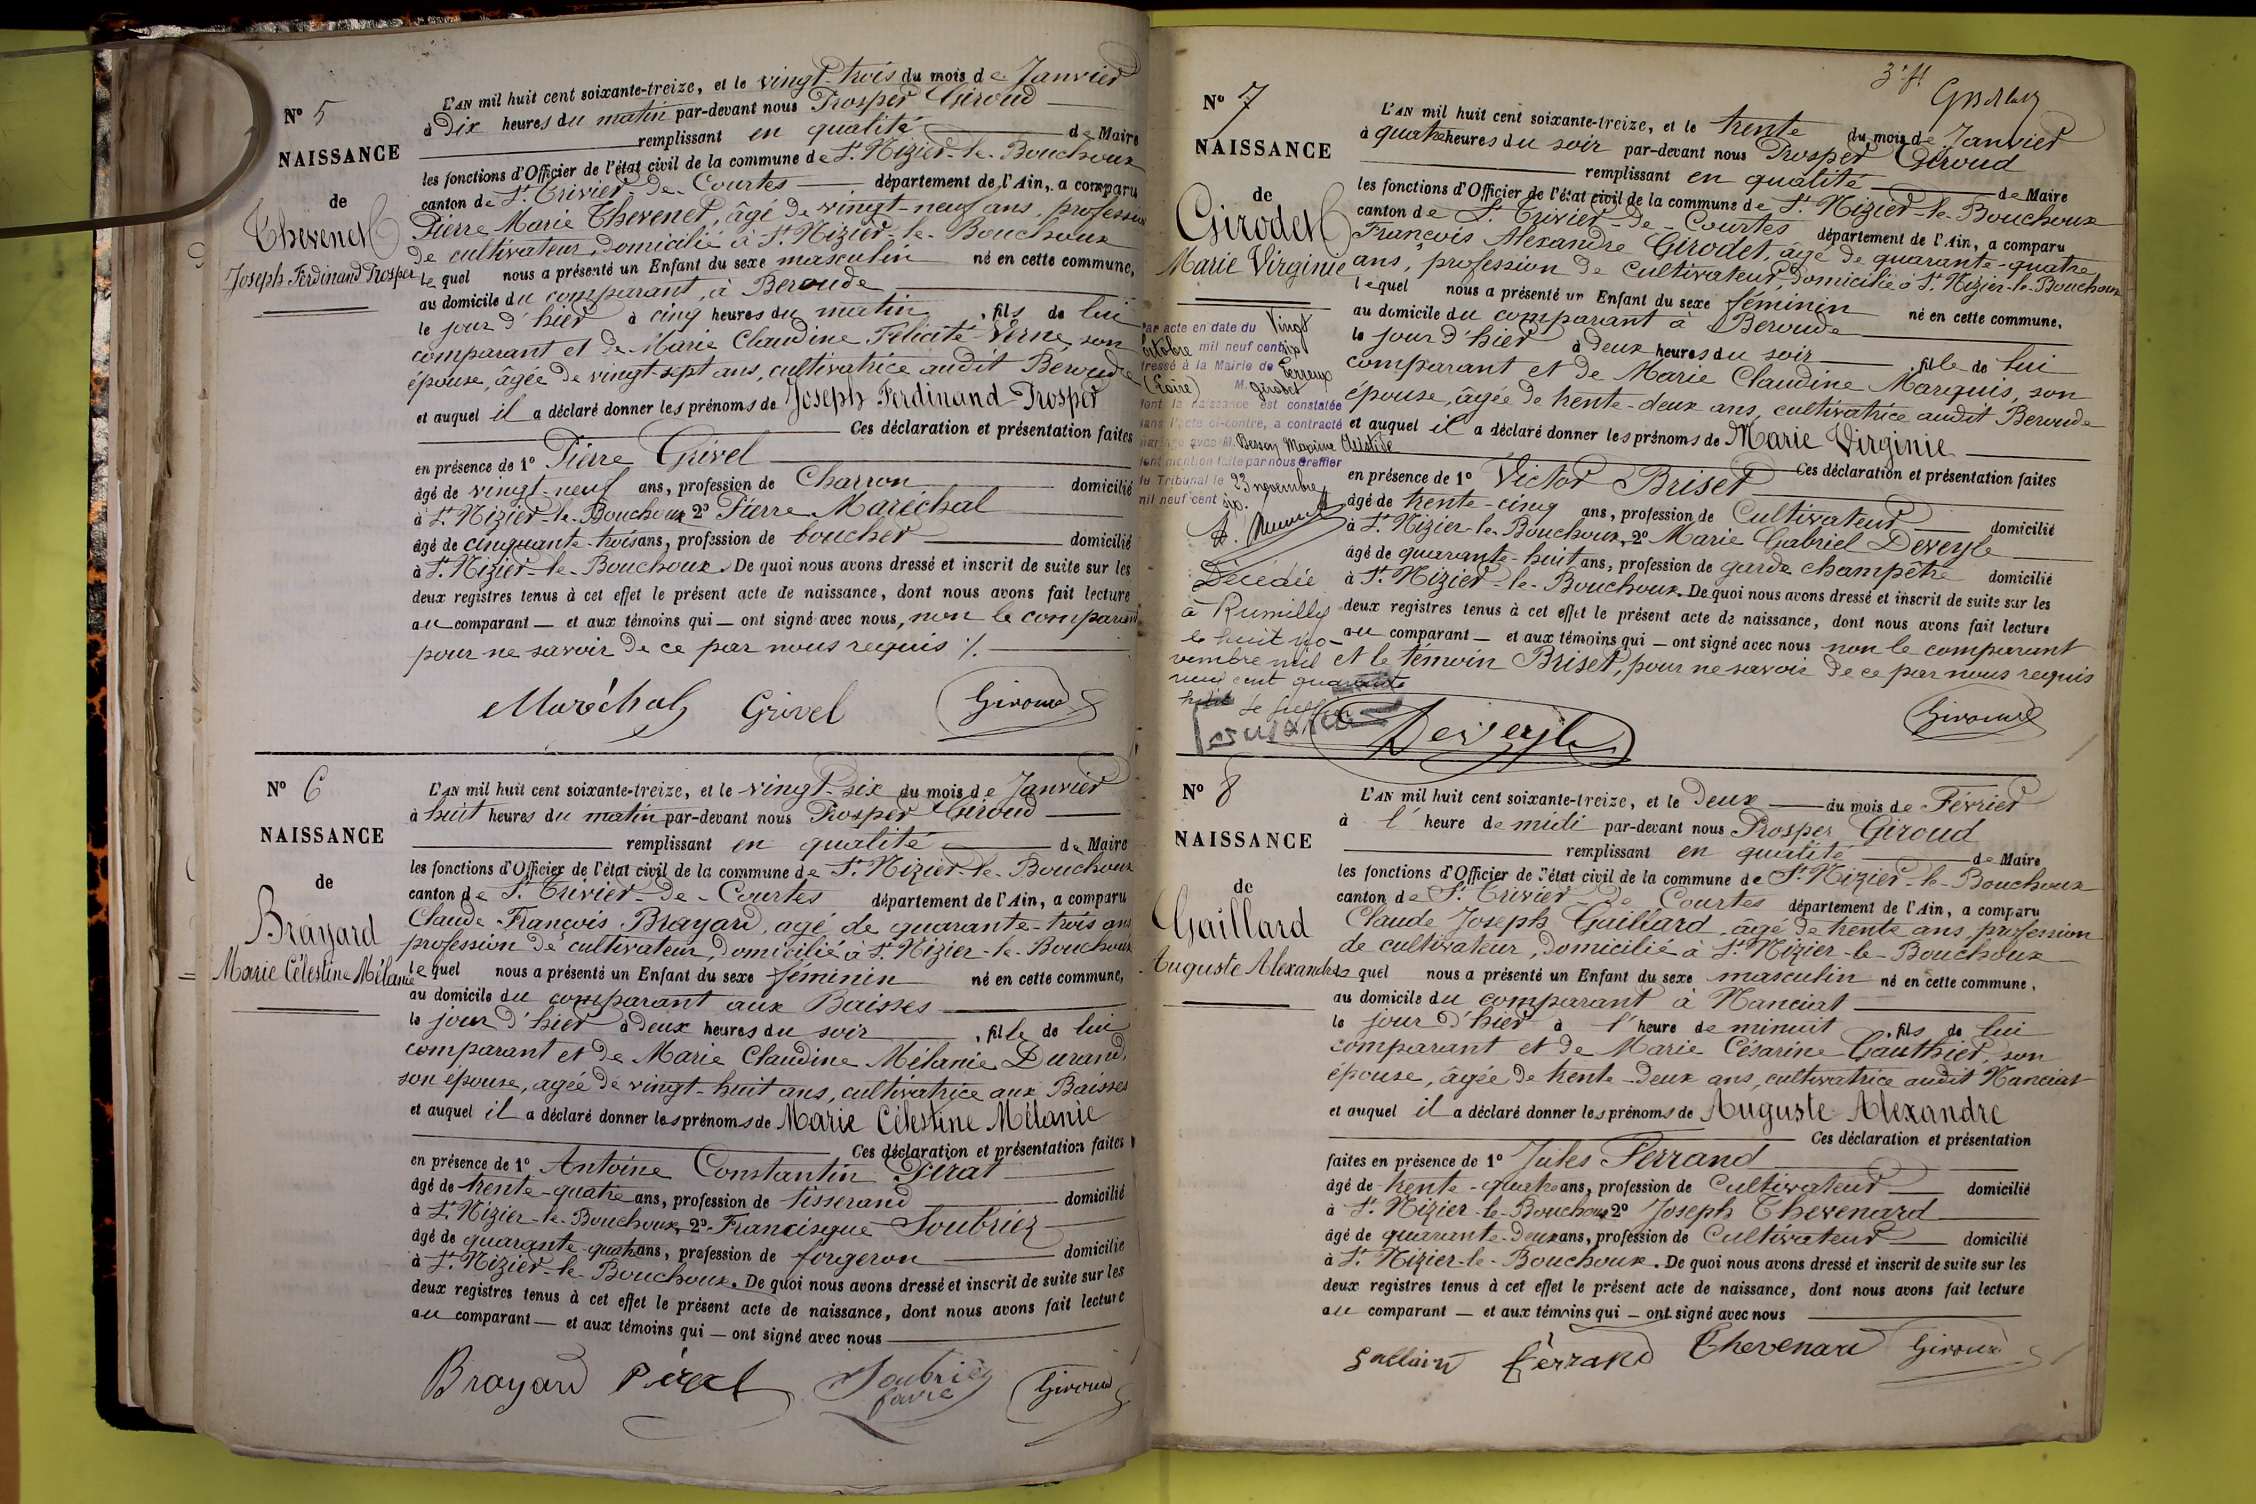 N° 5
NAISSANCE
de
Thevenet
Joseph Ferdinand Prosper
L'AN mil huit cent soixante-treize, et le vingt-trois du mois de Janvier
à Dix heures du matin par-devant nous Prosper Giroud
remplissant en qualité de Maire
les fonctions d'Officier de l'état civil de la commune de St. Nizier-le-Bouchoux
canton de St. Trivier-de-Courtes département de l'Ain, a comparu
Pierre Marie Thevenet, âgé de vingt-neuf ans, profession
de cultivateur, domicilié à St. Nizier-le-Bouchoux
lequel nous a présenté un Enfant du sexe masculin né en cette commune,
au domicile du comparant, à Beroude
le jour d'hier à cinq heures du matin, fils de lui
comparant et de Marie Claudine Félicité Verne, son
épouse, âgée de vingt-sept ans, cultivatrice audit Beroude
et auquel il a déclaré donner les prénoms de Joseph Ferdinand Prosper
Ces déclaration et présentation faites
en présence de 1° Pierre Grivel
âgé de vingt-neuf ans, profession de Charron domicilié
à St. Nizier-le-Bouchoux 2° Pierre Maréchal
âgé de cinquante-trois ans, profession de boucher domicilié
à St. Nizier-le-Bouchoux. De quoi nous avons dressé et inscrit de suite sur les
deux registres tenus à cet effet le présent acte de naissance, dont nous avons fait lecture
au comparant — et aux témoins qui — ont signé avec nous, non le comparant
pour ne savoir de ce par nous requis ./.
Maréchal Grivel Giroud
N° 6
NAISSANCE
de
Brayard
Marie Célestine Mélanie
L'AN mil huit cent soixante-treize, et le vingt-six du mois de Janvier
à huit heures du matin par-devant nous Prosper Giroud
remplissant en qualité de Maire
les fonctions d'Officier de l'état civil de la commune de St. Nizier-le-Bouchoux
canton de St. Trivier-de-Courtes département de l'Ain, a comparu
Claude François Brayard, agé de quarante-trois ans
profession de cultivateur, domicilié à St. Nizier-le-Bouchoux
lequel nous a présenté un Enfant du sexe féminin né en cette commune,
au domicile du comparant aux Baisses
le jour d'hier à deux heures du soir, fille de lui
comparant et de Marie Claudine Mélanie Durand,
son épouse, agée de vingt-huit ans, cultivatrice aux Baisses
et auquel il a déclaré donner les prénoms de Marie Célestine Mélanie
Ces déclaration et présentation faites
en présence de 1° Antoine Constantin Pérat
âgé de trente-quatre ans, profession de tisserand domicilié
à St. Nizier-le-Bouchoux, 2° Francisque Soubriez
âgé de quarante-quatre ans, profession de forgeron domicilié
à St. Nizier-le-Bouchoux. De quoi nous avons dressé et inscrit de suite sur les
deux registres tenus à cet effet le présent acte de naissance, dont nous avons fait lecture
au comparant — et aux témoins qui — ont signé avec nous
Brayard Pérat Soubriez Giroud
3e ft
N° 7
NAISSANCE
de
Girodet
Marie Virginie
Par acte en date du Vingt
octobre mil neuf cent six
dressé à la Mairie de Perreux
(Loire) M. Girodet
dont la naissance est constatée
dans l'acte ci-contre, a contracté
mariage avec M. Besson Maxime Aristide
dont mention faite par nous Greffier
du Tribunal le 23 novembre
mil neuf cent six.
Décédée
à Rumilly
le huit no-
vembre mil
neuf cent quarante
huit
L'AN mil huit cent soixante-treize, et le trente du mois de Janvier
à quatre heures du soir par-devant nous Prosper Giroud
remplissant en qualité de Maire
les fonctions d'Officier de l'état civil de la commune de St. Nizier-le-Bouchoux
canton de St. Trivier-de-Courtes département de l'Ain, a comparu
François Alexandre Girodet, âgé de quarante-quatre
ans, profession de cultivateur, domicilié à St. Nizier-le-Bouchoux
lequel nous a présenté un Enfant du sexe féminin né en cette commune,
au domicile du comparant à Beroude
le jour d'hier à deux heures du soir fille de lui
comparant et de Marie Claudine Marquis, son
épouse, âgée de trente-deux ans, cultivatrice audit Beroude
et auquel il a déclaré donner les prénoms de Marie Virginie
Ces déclaration et présentation faites
en présence de 1° Victor Briset
âgé de trente-cinq ans, profession de Cultivateur domicilié
à St. Nizier-le-Bouchoux, 2° Marie Gabriel Deveyle
âgé de quarante-huit ans, profession de garde champêtre domicilié
à St. Nizier-le-Bouchoux. De quoi nous avons dressé et inscrit de suite sur les
deux registres tenus à cet effet le présent acte de naissance, dont nous avons fait lecture
au comparant — et aux témoins qui — ont signé avec nous non le comparant
et le témoin Briset, pour ne savoir de ce par nous requis
Deveyle Giroud
N° 8
NAISSANCE
de
Gaillard
Auguste Alexandre
L'AN mil huit cent soixante-treize, et le deux du mois de Février
à l'heure de midi par-devant nous Prosper Giroud
remplissant en qualité de Maire
les fonctions d'Officier de l'état civil de la commune de St. Nizier-le-Bouchoux
canton de St. Trivier-de-Courtes département de l'Ain, a comparu
Claude Joseph Gaillard, âgé de trente ans, profession
de cultivateur, domicilié à St. Nizier-le-Bouchoux
lequel nous a présenté un Enfant du sexe masculin né en cette commune,
au domicile du comparant à Nanciat
le jour d'hier à l'heure de minuit, fils de lui
comparant et de Marie Césarine Gauthier, son
épouse, âgée de trente-deux ans, cultivatrice audit Nanciat
et auquel il a déclaré donner les prénoms de Auguste Alexandre
Ces déclaration et présentation
faites en présence de 1° Jules Ferrand
âgé de trente-quatre ans, profession de Cultivateur domicilié
à St. Nizier-le-Bouchoux 2° Joseph Thevenard
âgé de quarante-deux ans, profession de Cultivateur domicilié
à St. Nizier-le-Bouchoux. De quoi nous avons dressé et inscrit de suite sur les
deux registres tenus à cet effet le présent acte de naissance, dont nous avons fait lecture
au comparant — et aux témoins qui — ont signé avec nous
Ferrand Thevenard Giroud